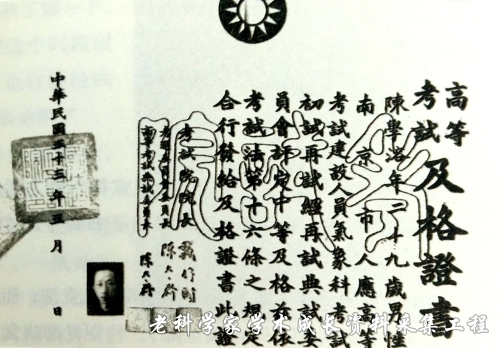 高等
考試
及格證書
陳學溶年二十九歲男性
南京市人應高等
考試建設人員氣象科考試
初試再試經再試典試委
員會評定中等及格茲依
考試法第十六條之規定
合行發給及格證書此證
考試院院長
中華民國三十三年三月 日
老科学家学术成长资料采集工程